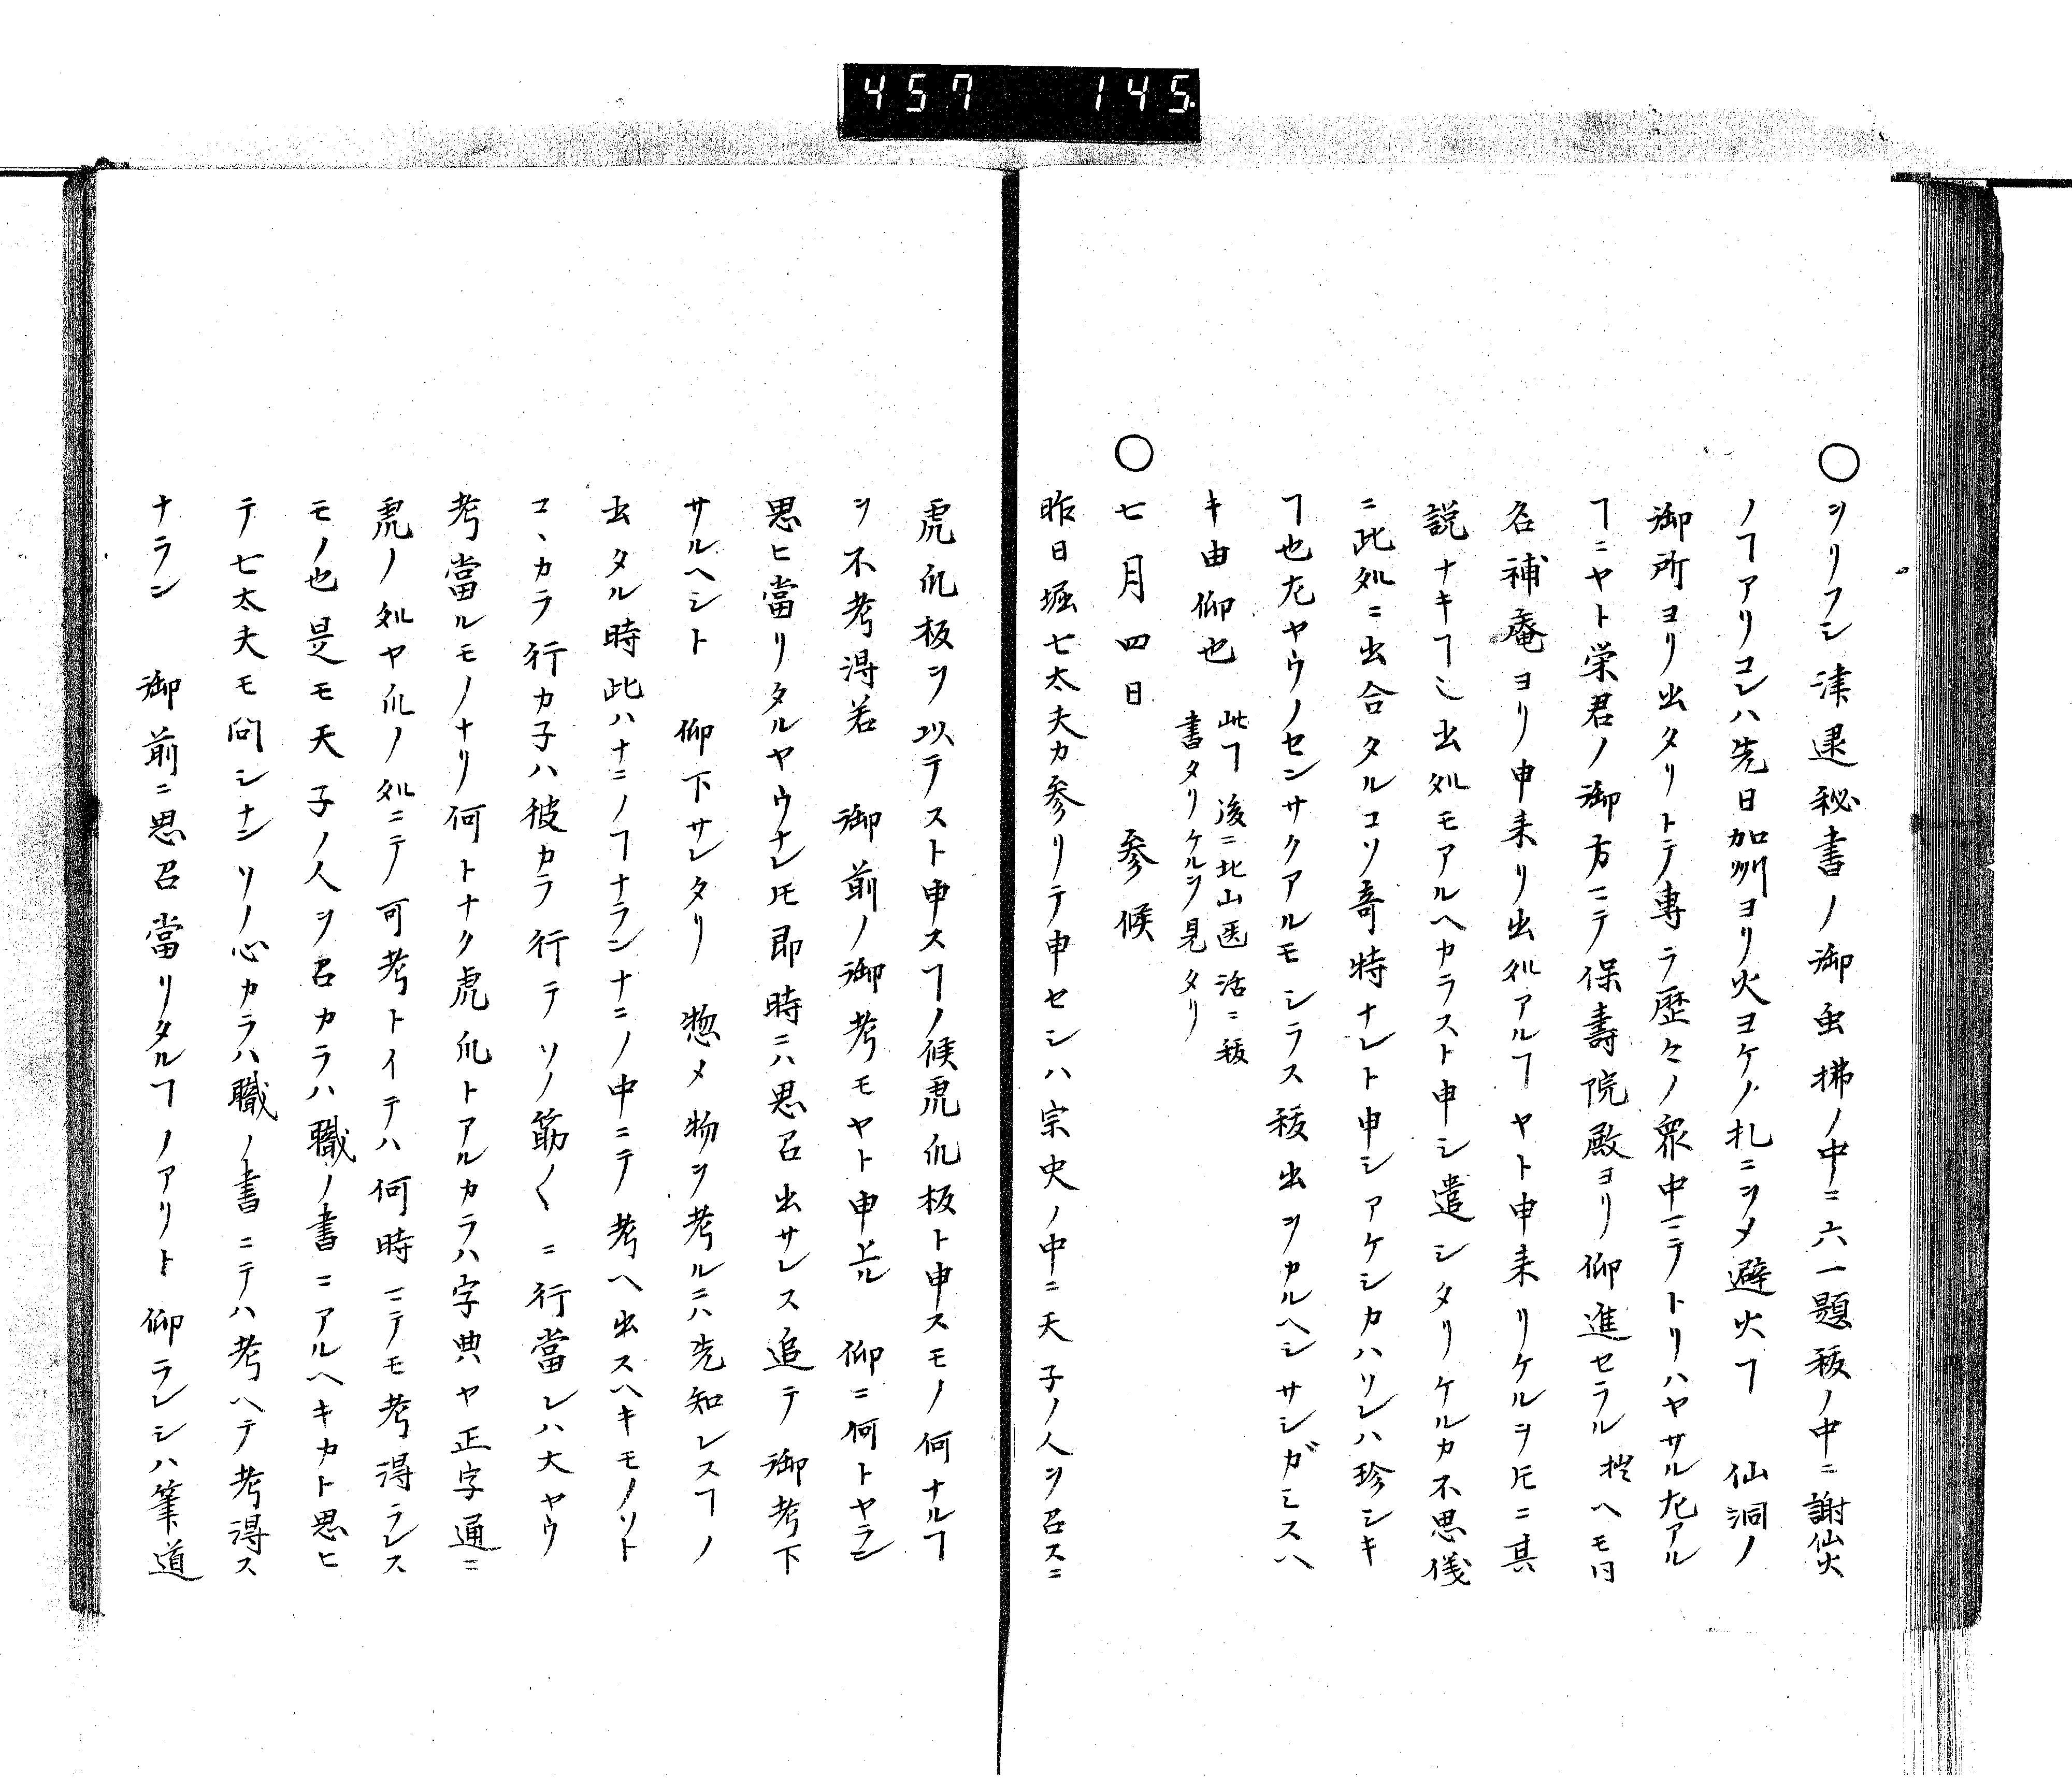 457 145.
○ヲリフシ津逮秘書ノ御虫拂ノ中ニ六一題跋ノ中ニ謝仙火
ノヿアリコレハ先日加州ヨリ火ヨケノ札ニヲメ避火ヿ 仙洞ノ
御所ヨリ出タリトテ専ラ歴々ノ衆中ニテトリハヤサル尤アル
ヿニヤト栄君ノ御方ニテ保壽院殿ヨリ仰進セラル 拠ヘモ同
名補庵ヨリ申来リ出処アルヿヤト申来リケルヲ𪜈ニ其
説ナキヿ也出処モアルヘカラスト申シ遣シタリケルカ不思儀
ニ此処ニ出合タルコソ奇特ナレト申シアケシカハソレハ珍シキ
ヿ也尤ヤウノセンサクアルモシラス移出ヲカルヘシサシガミスヘ
キ由仰也 此ヿ後ニ北山医話ニ移
書タリケルヲ見タリ
○七月四日 参候
昨日堀七太夫カ参リテ申セシハ宗史ノ中ニ天子ノ人ヲ召スニ
虎爪板ヲ以テスト申スヿノ候虎爪板ト申スモノ何ナルヿ
ヲ不考得若 御前ノ御考モヤト申上ル 仰ニ何トヤラン
思ヒ當リタルヤウナレ𪜈即時ニハ思召出サレス追テ御考下
サルヘシト 仰下サレタリ 惣メ物ヲ考ルニハ先知レスヿノ
出タル時此ハナニノヿナランナニノ中ニテ考ヘ出スヘキモノソト
コヽカラ行カ子ハ彼カラ行テソノ筋〱ニ行當レハ大ヤウ
考當ルモノナリ何トナク虎爪トアルカラハ字典ヤ正字通ニ
虎ノ処ヤ爪ノ処ニテ可考トイテハ何時ニテモ考得ラレス
モノ也是モ天子ノ人ヲ召カラハ職ノ書ニアルヘキカト思ヒ
テ七太夫モ問シナレソノ心カラハ職ノ書ニテハ考ヘテ考得ス
ナラン 御前ニ思召當リタルヿノアリト 仰ラレシハ筆道